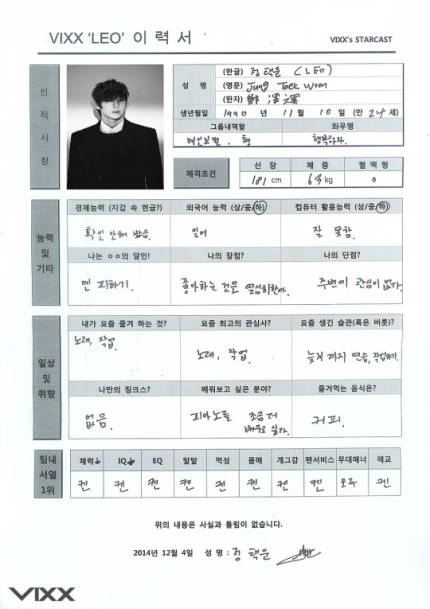 VIXX 'LEO' 이 력 서
VIXX's STARCAST
인적사항
성 명
(한글) 정 택운 (LEO)
(영문) Jung Taek Woon
(한자) 鄭 澤運
생년월일 1990 년 11 월 10 일 (만 24 세)
그룹내역할 좌우명
메인보컬. 형 행복하자.
체격조건
신 장 체 중 혈 액 형
181 cm 63 kg o
능력 및 기타
경제능력 (지갑 속 현금?) 외국어 능력 (상/중/하) 컴퓨터 활용능력 (상/중/하)
확인 안해 봤음. 일어 잘 못함.
나는 ㅇㅇ의 달인! 나의 장점? 나의 단점?
피하기. 좋아하는 것을 열심히한다. 주변에 관심이 없다.
일상 및 취향
내가 요즘 즐겨 하는 것? 요즘 최고의 관심사? 요즘 생긴 습관(혹은 버릇)?
노래, 작업. 노래, 작업. 늦게 까지 연습, 작업하기.
나만의 징크스? 배워보고 싶은 분야? 즐겨먹는 음식은?
없음. 피아노를 조금 더 배우고 싶다. 커피.
팀내 서열 1위
체력 IQ EQ 말발 먹성 몸매 개그감 팬서비스 무대매너 애교
켄 켄 켄 켄 켄 켄 켄 켄 켄
위의 내용은 사실과 틀림이 없습니다.
2014년 12월 4일 성 명 : 정 택운
VIXX